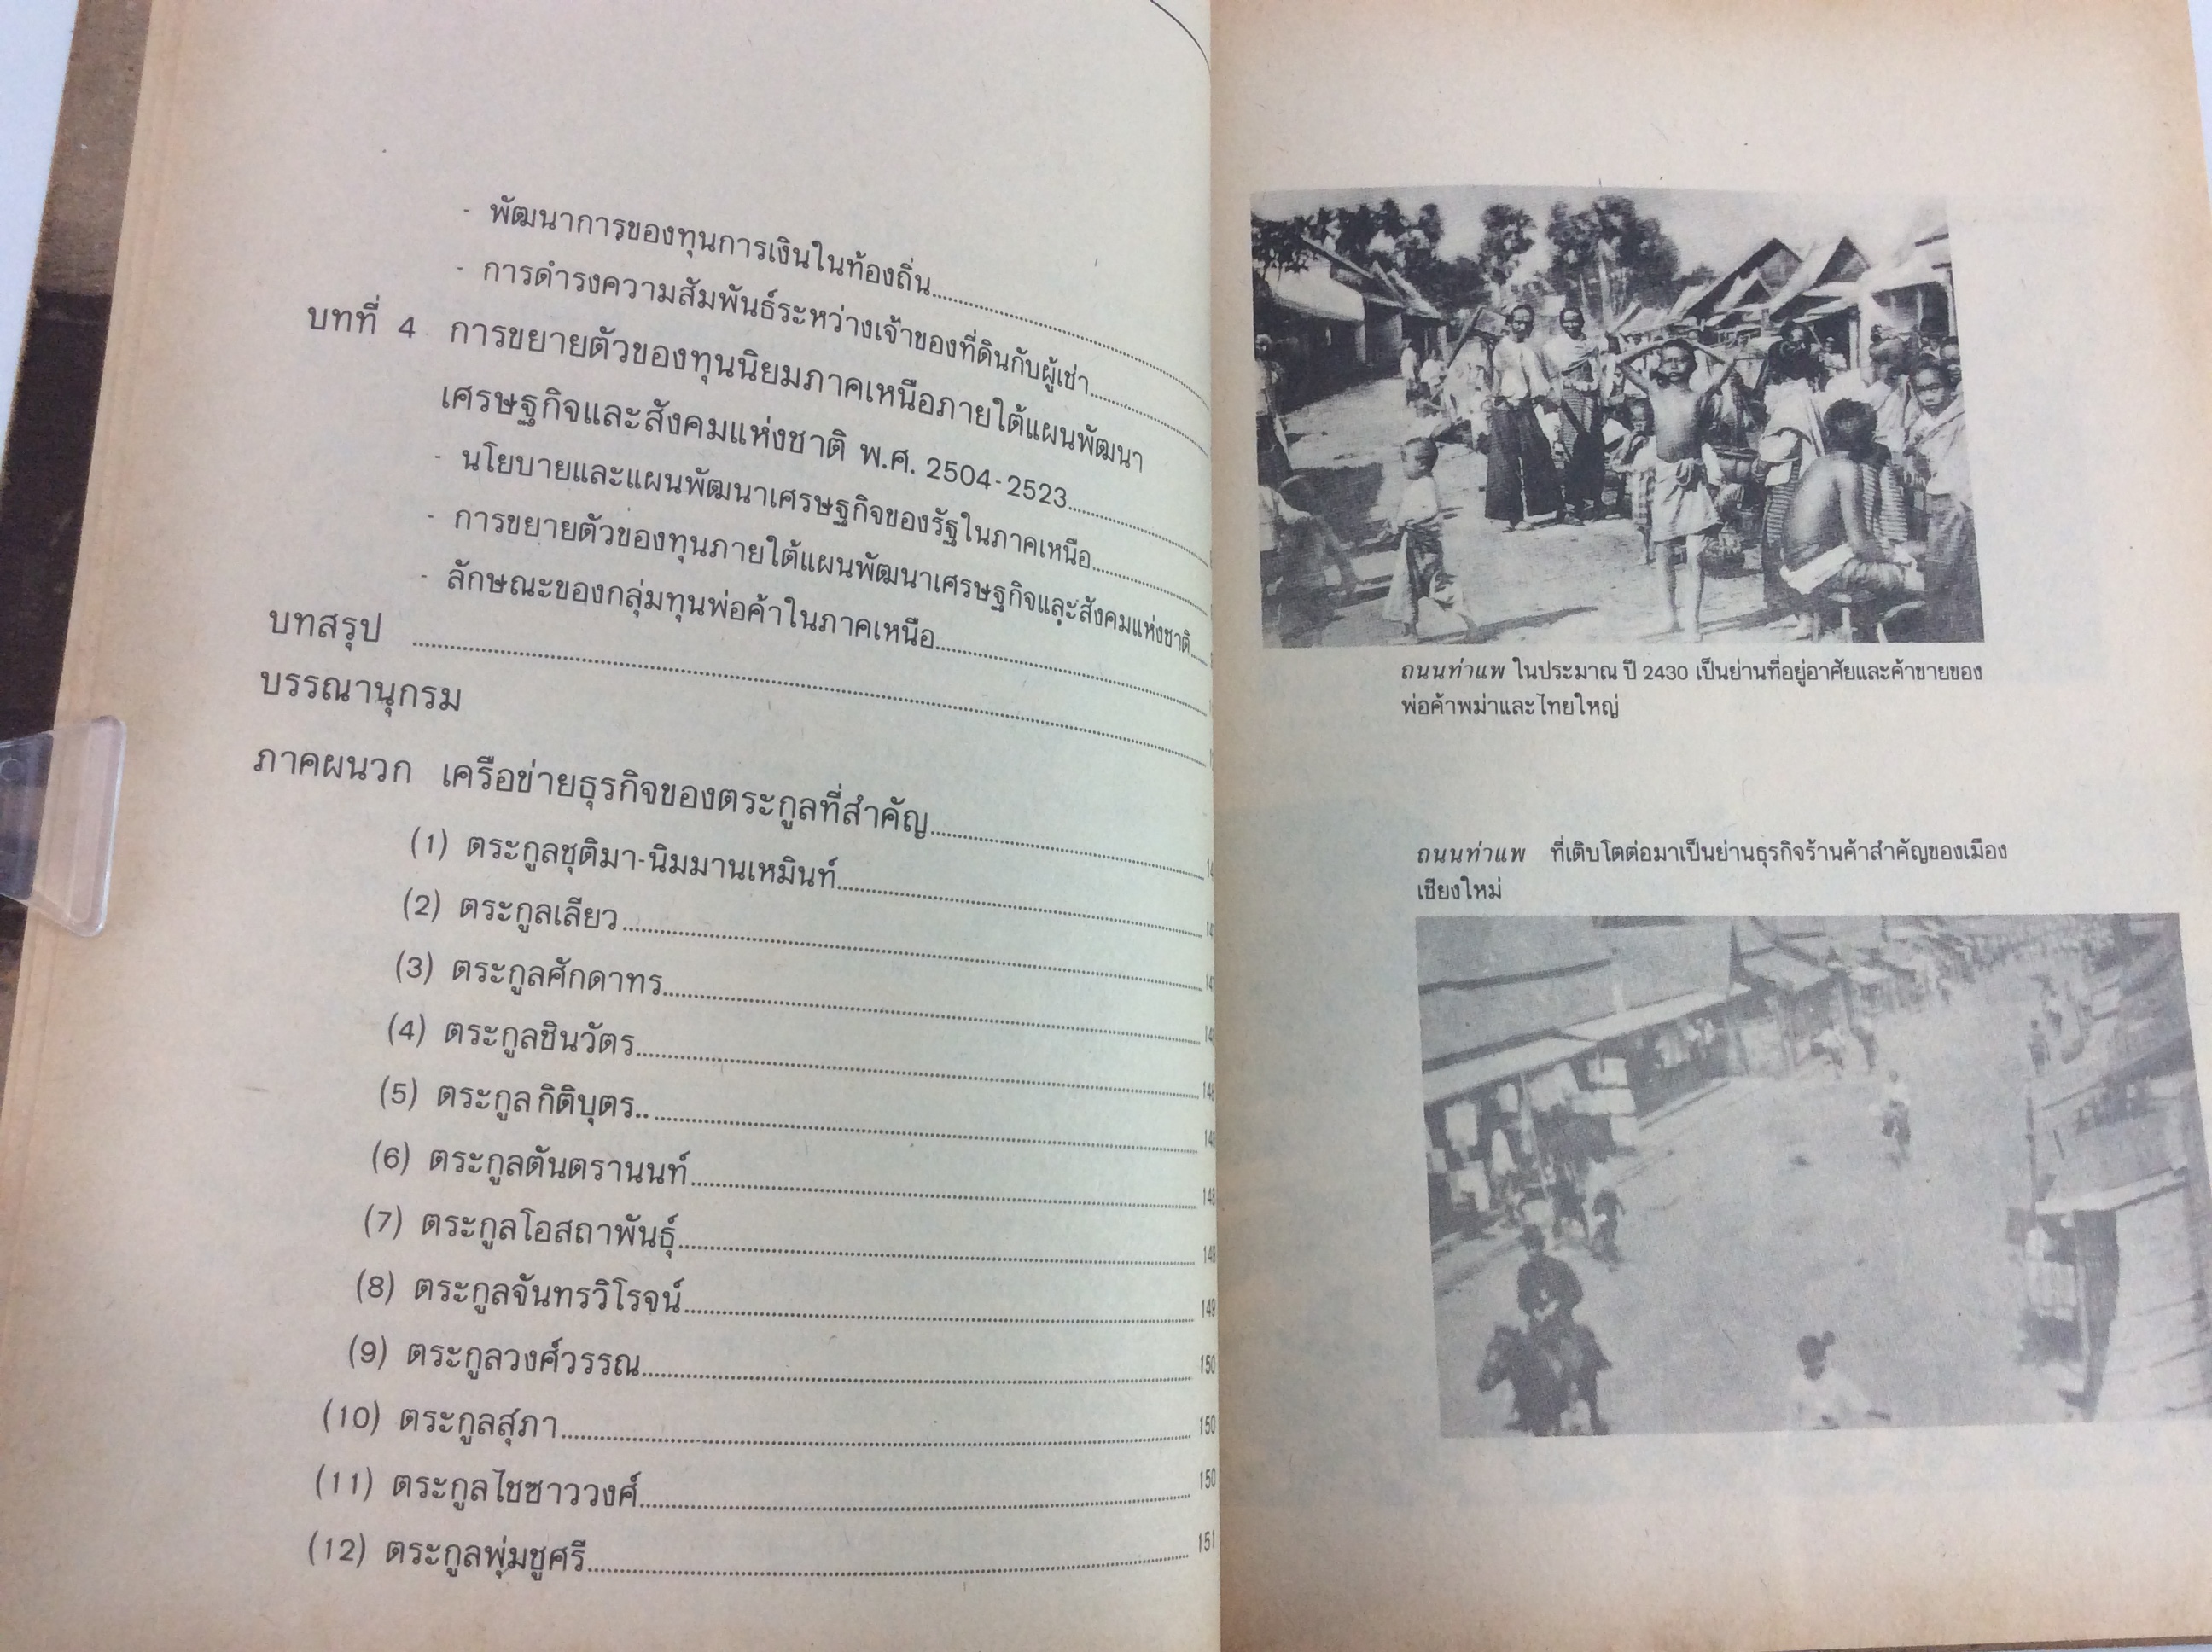 - พัฒนาการของทุนการเงินในท้องถิ่น
- การดำรงความสัมพันธ์ระหว่างเจ้าของที่ดินกับผู้เช่า
บทที่ 4 การขยายตัวของทุนนิยมภาคเหนือภายใต้แผนพัฒนา
เศรษฐกิจและสังคมแห่งชาติ พ.ศ. 2504-2523
- นโยบายและแผนพัฒนาเศรษฐกิจของรัฐในภาคเหนือ
- การขยายตัวของทุนภายใต้แผนพัฒนาเศรษฐกิจและสังคมแห่งชาติ
- ลักษณะของกลุ่มทุนพ่อค้าในภาคเหนือ
บทสรุป
บรรณานุกรม
ภาคผนวก เครือข่ายธุรกิจของตระกูลที่สำคัญ
(1) ตระกูลชุติมา-นิมมานเหมินท์
(2) ตระกูลเลียว
(3) ตระกูลศักดาทร
(4) ตระกูลชินวัตร
(5) ตระกูลกิติบุตร
(6) ตระกูลตันตรานนท์
(7) ตระกูลโอสถาพันธุ์
(8) ตระกูลจันทรวิโรจน์ 149
(9) ตระกูลวงศ์วรรณ 150
(10) ตระกูลสุภา 150
(11) ตระกูลไชซาววงศ์ 150
(12) ตระกูลพุ่มชูศรี 151
ถนนท่าแพ ในประมาณ ปี 2430 เป็นย่านที่อยู่อาศัยและค้าขายของ
พ่อค้าพม่าและไทยใหญ่
ถนนท่าแพ ที่เติบโตต่อมาเป็นย่านธุรกิจร้านค้าสำคัญของเมือง
เชียงใหม่